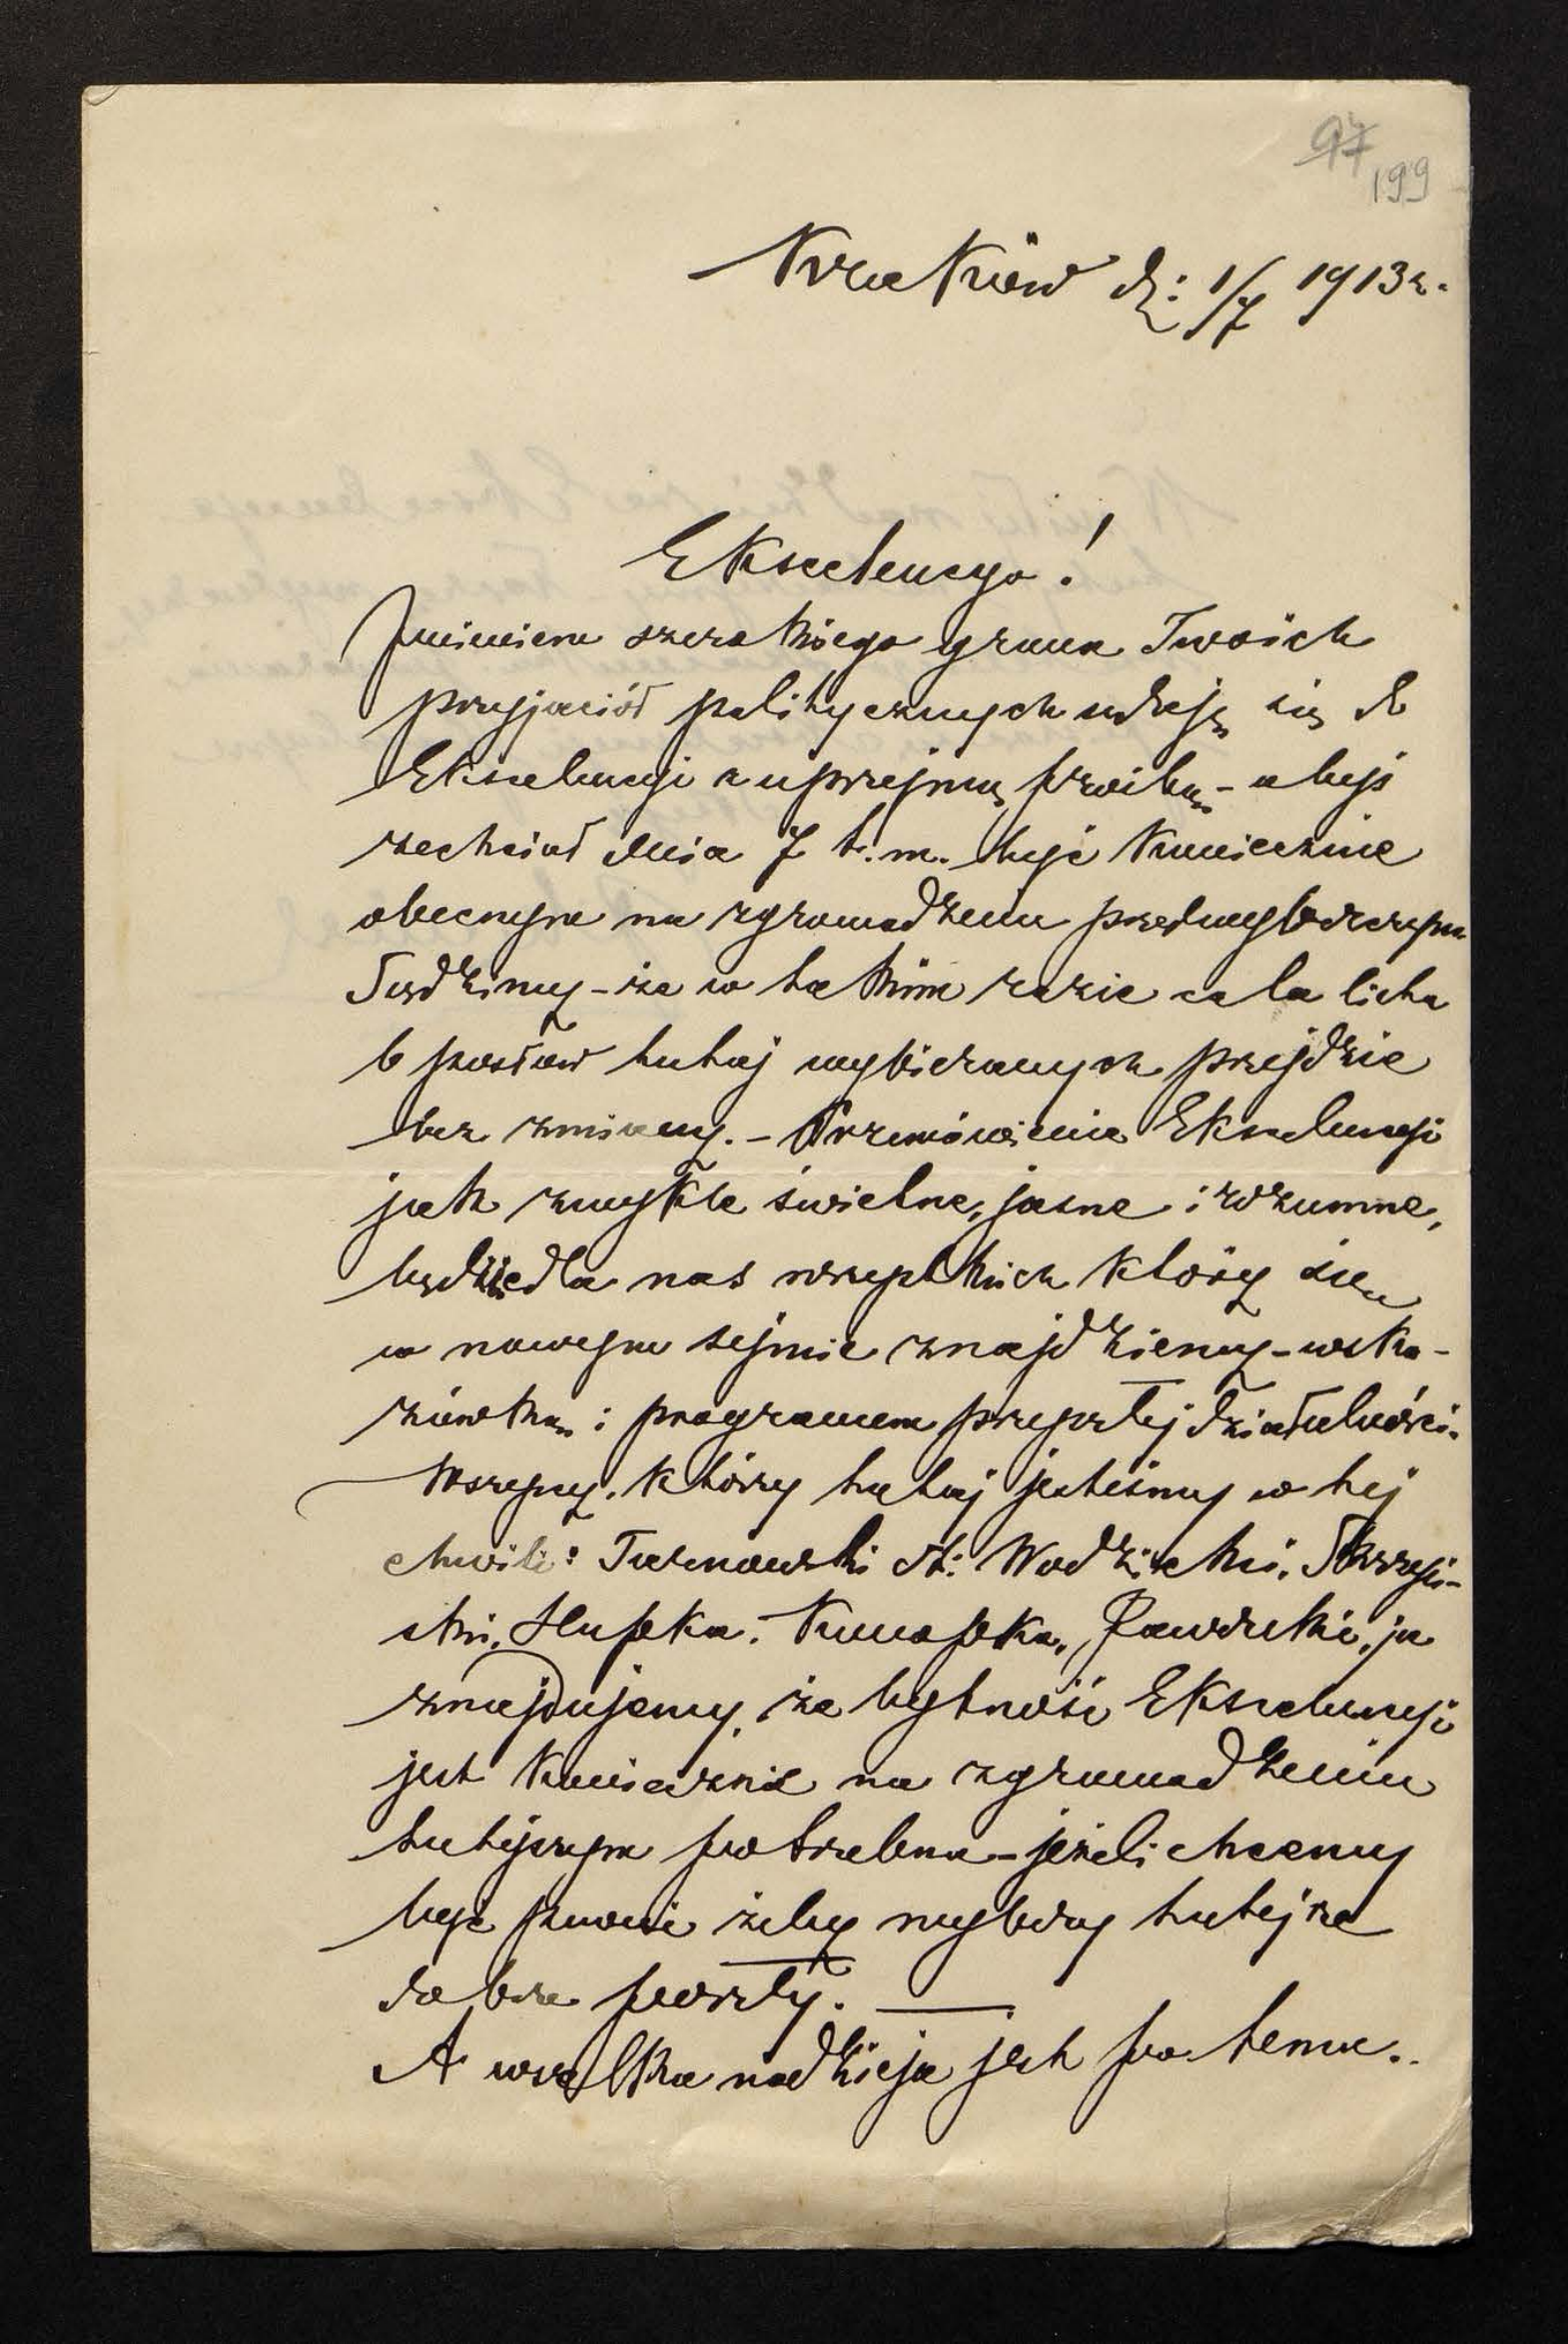 97
199
Kraków d: 1/7 1913 r.
Ekscelencyo!
Imieniem szerokiego grona Twoich
przyjaciół politycznych udaję się do
Ekscelencyi z uprzejmą prośbą – abyś
zechciał dnia 7 b.m. być koniecznie
obecnym na zgromadzeniu przedwyborczym
Sądzimy – że w takim razie cała lista
6 posłów tutaj wybieranych przejdzie
bez zmiany. – Przemówienie Ekscelencyi
jak zwykle świetne, jasne i rozumne,
będzie dla nas wszystkich którzy się
w nowym sejmie znajdziemy – wska-
zówką i programem przyszłej działalności.
Wszyscy, którzy tutaj jesteśmy w tej
chwili: Tarnowski St: Wodzicki, Skrzyń-
ski, Hupka, Konopka, ja
znajdujemy, że bytność Ekscelencyi
jest koniecznie na zgromadzeniu
tutejszym potrzebna – jeżeli chcemy
być pewni żeby wybory tutejsze
dobrze poszły. —
A wszelka nadzieja jest po temu..